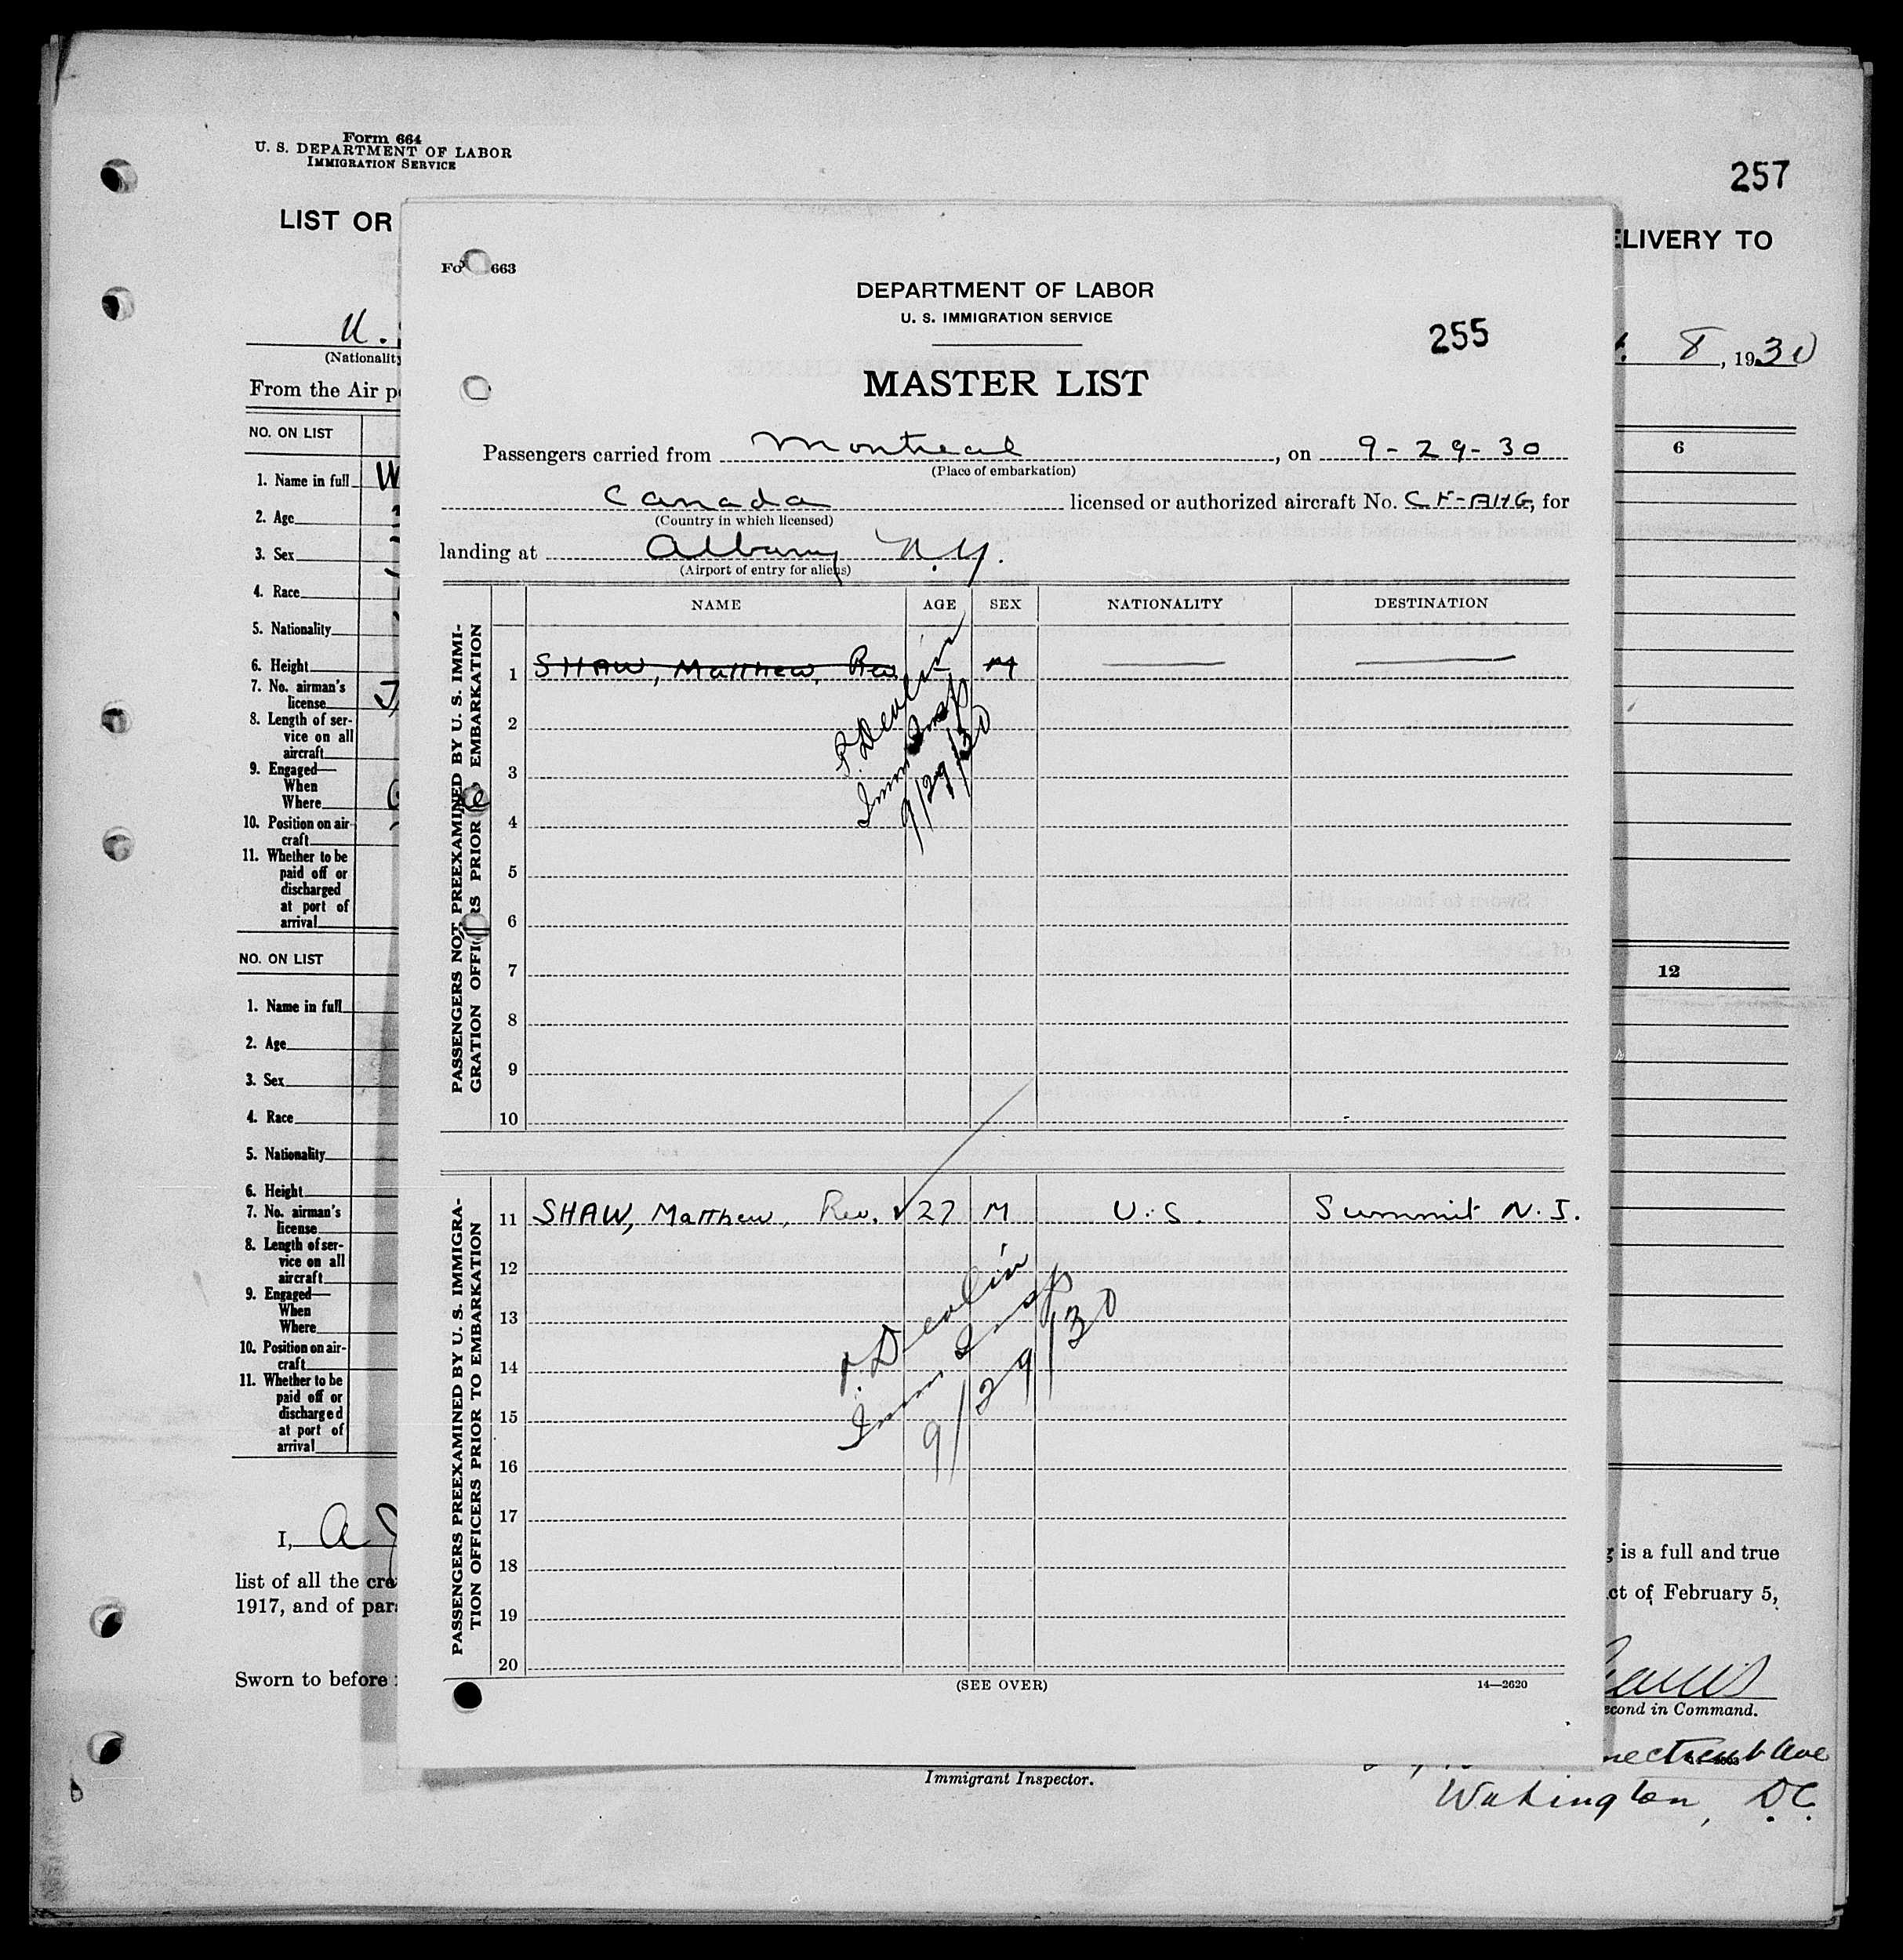 Form 664
U. S. DEPARTMENT OF LABOR
IMMIGRATION SERVICE
257
LIST OR
ELIVERY TO
U.
(Nationality
8, 1930
From the Air p
NO. ON LIST
6
1. Name in full W
2. Age
3. Sex
4. Race
5. Nationality
6. Height
7. No. airman's
license
8. Length of ser-
vice on all
aircraft
9. Engaged—
When
Where
10. Position on air-
craft
11. Whether to be
paid off or
discharged
at port of
arrival
NO. ON LIST
12
1. Name in full
2. Age
3. Sex
4. Race
5. Nationality
6. Height
7. No. airman's
license
8. Length of ser-
vice on all
aircraft
9. Engaged—
When
Where
10. Position on air-
craft
11. Whether to be
paid off or
discharged
at port of
arrival
I, A
list of all the cre
1917, and of par
Sworn to before
g is a full and true
ct of February 5,
econd in Command.
Immigrant Inspector.
necticut Ave
Wahington, D.C.
Fo 663
DEPARTMENT OF LABOR
U. S. IMMIGRATION SERVICE
255
MASTER LIST
Passengers carried from Montreal, on 9-29-30
(Place of embarkation)
Canada licensed or authorized aircraft No. CF-AHG, for
(Country in which licensed)
landing at Albany N.Y.
(Airport of entry for aliens)
NAME AGE SEX NATIONALITY DESTINATION
PASSENGERS NOT PREEXAMINED BY U. S. IMMI-
GRATION OFFICERS PRIOR EMBARKATION
1 SHAW, Matthew, Rev. — M
2
3
4
5
6
7
8
9
10
Devlin
Imm Insp
9/29/30
PASSENGERS PREEXAMINED BY U. S. IMMIGRA-
TION OFFICERS PRIOR TO EMBARKATION
11 SHAW, Matthew, Rev. ✓ 27 M U.S. Summit N.J.
12
13
14
15
16
17
18
19
20
Devlin
Imm Insp
9/29/30
(SEE OVER)
14—2620